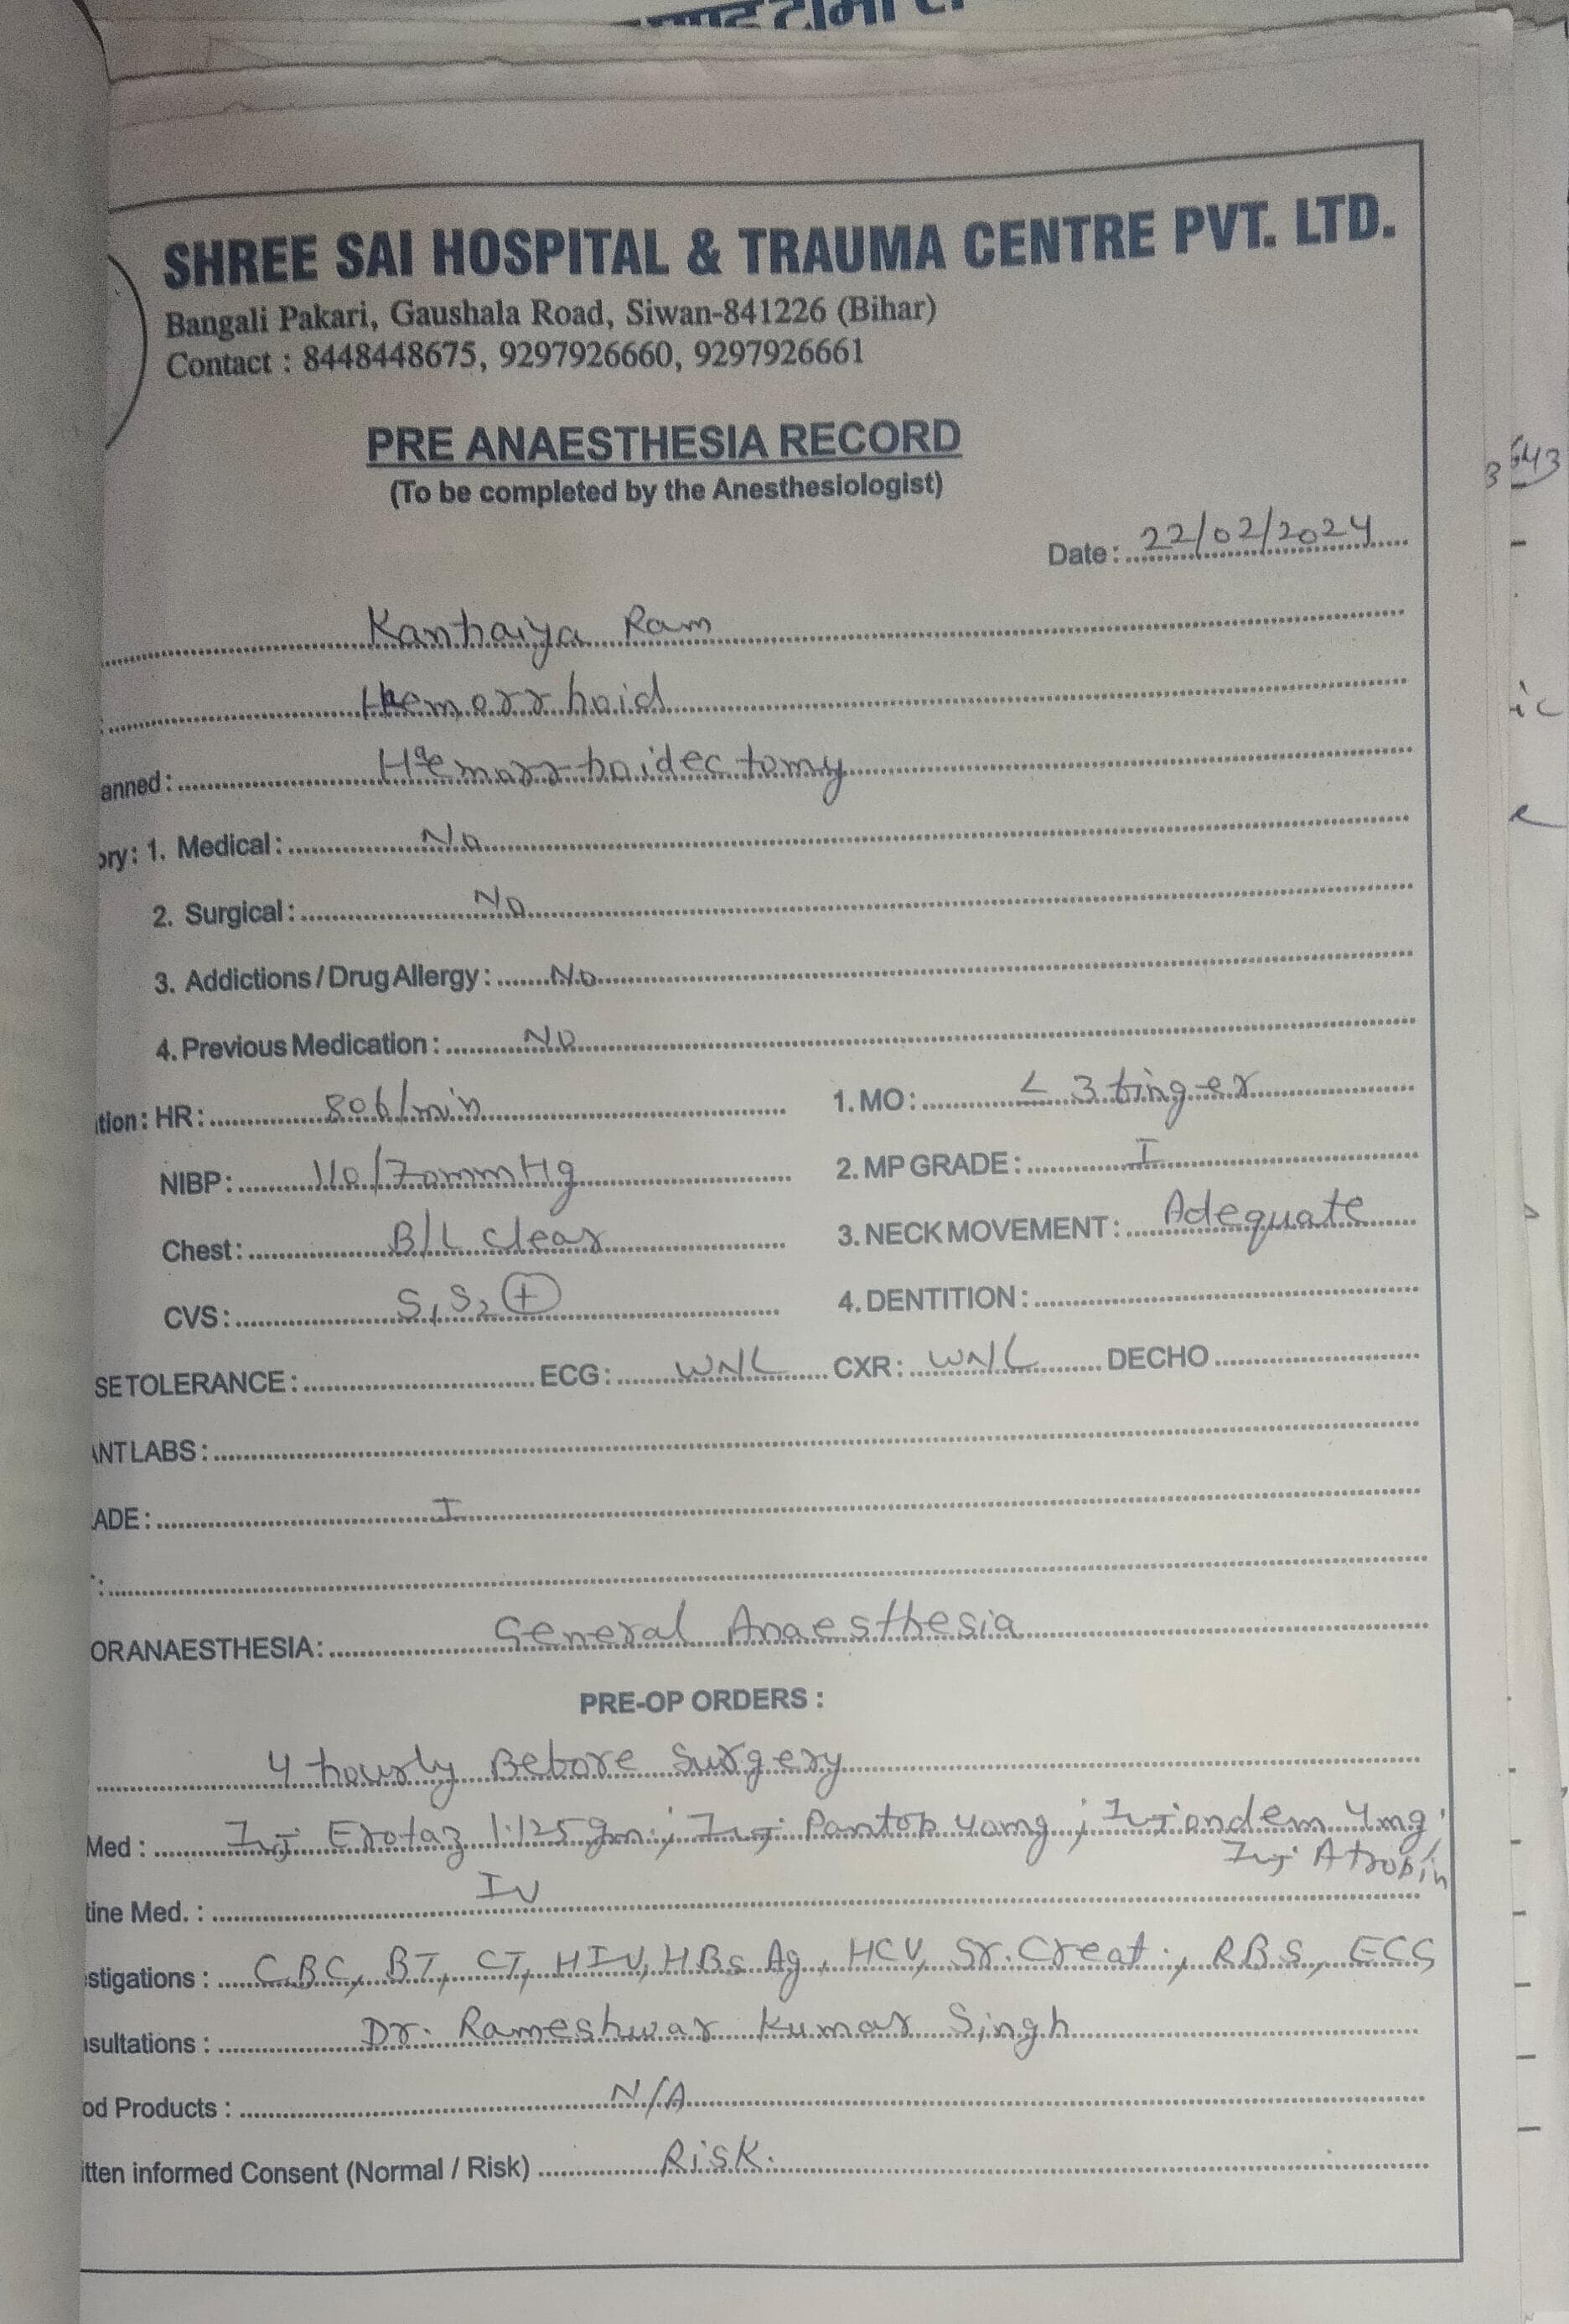 SHREE SAI HOSPITAL & TRAUMA CENTRE PVT. LTD.
Bangali Pakari, Gaushala Road, Siwan-841226 (Bihar)
Contact : 8448448675, 9297926660, 9297926661
PRE ANAESTHESIA RECORD
(To be completed by the Anesthesiologist)
Date : 22/02/2024
Kanhaiya Ram
Haemorrhoid
anned : Haemorrhoidectomy
ory : 1. Medical : No
2. Surgical : No
3. Addictions / Drug Allergy : No
4. Previous Medication : No
tion : HR : 80b/min 1. MO : ≤ 3 finger
NIBP : 110/70mmHg 2. MP GRADE : I
Chest : B/L clear 3. NECK MOVEMENT : Adequate
CVS : S1 S2 (+) 4. DENTITION :
SE TOLERANCE : ECG : WNL CXR : WNL DECHO
ANT LABS :
ADE : I
OR ANAESTHESIA : General Anaesthesia
PRE-OP ORDERS :
4 hourly Before Surgery
Med : Inj Exotaz 1.125gm ; Inj Pantop 40mg ; Inj ondem 4mg ;
Inj. Atropin
tine Med. : IV
stigations : C.B.C, BT, CT, HIV, HBsAg, HCV, Sr. Creat., RBS, ECG
nsultations : Dr. Rameshwar Kumar Singh
od Products : N/A
itten informed Consent (Normal / Risk) Risk.